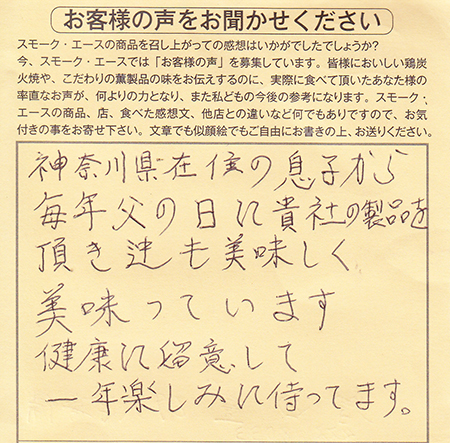 お客様の声をお聞かせください
スモーク・エースの商品を召し上がっての感想はいかがでしたでしょうか?
今、スモーク・エースでは「お客様の声」を募集しています。皆様においしい鶏炭
火焼や、こだわりの薫製品の味をお伝えするのに、実際に食べて頂いたあなた様の
率直なお声が、何よりの力となり、また私どもの今後の参考になります。スモーク・
エースの商品、店、食べた感想文、他店との違いなど何でもありですので、お気
付きの事をお寄せ下さい。文章でも似顔絵でもご自由にお書きの上、お送りください。
神奈川県在住の息子から
毎年父の日に貴社の製品を
頂き迚も美味しく
美味っています
健康に留意して
一年楽しみに待ってます。